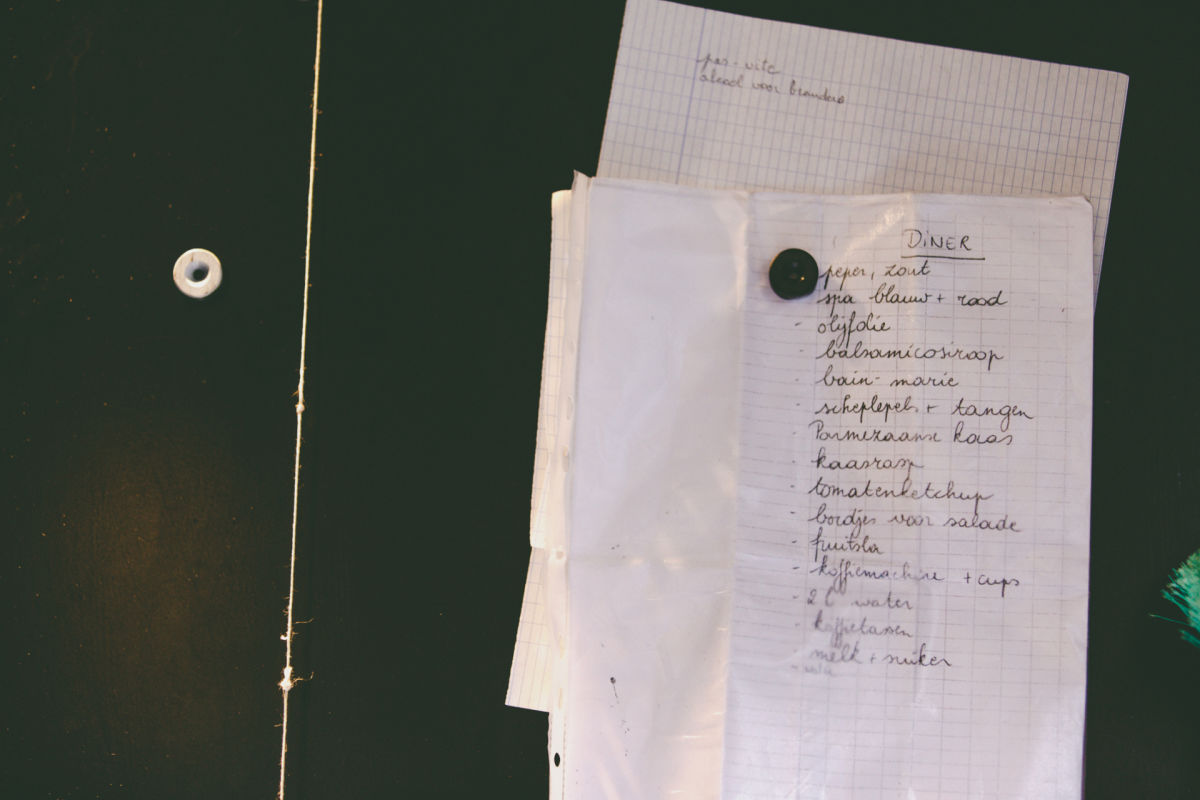 pas-vite
alcool voor branders
DINER
peper, zout
spa blauw + rood
- olijfolie
- balsamicosiroop
- bain-marie
- scheplepels + tangen
- Parmezaanse kaas
- kaasrasp
- tomatenketchup
- bordjes voor salade
- fruitsla
- koffiemachine + cups
- 2 l water
- koffietassen
- melk + suiker